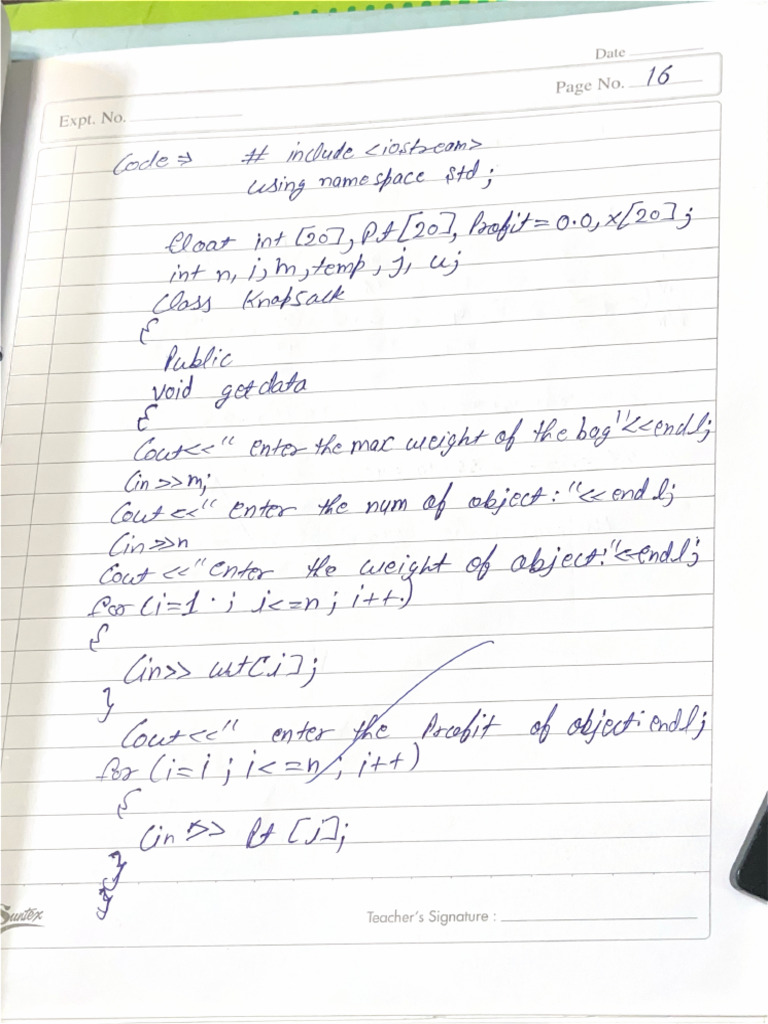 Date
Page No. 16
Expt. No.
Code ⇒ # include <iostream>
using namespace std;
float int [20], Pt [20], Profit = 0.0, x[20];
int n, i, m, temp, j, u;
Class Knapsack
{
Public
void getdata
{
Cout<<" enter the max weight of the bag"<<endl;
Cin>>m;
Cout<<" enter the num of object:"<<endl;
Cin>>n
Cout <<" enter the weight of object:"<<endl;
for (i=1 ; i<=n ; i++)
{
Cin>> wt[i];
}
Cout<<" enter the Profit of object: endl;
for (i=i ; i<=n ; i++)
{
Cin >> Pt [i];
}
Suntex
Teacher's Signature :